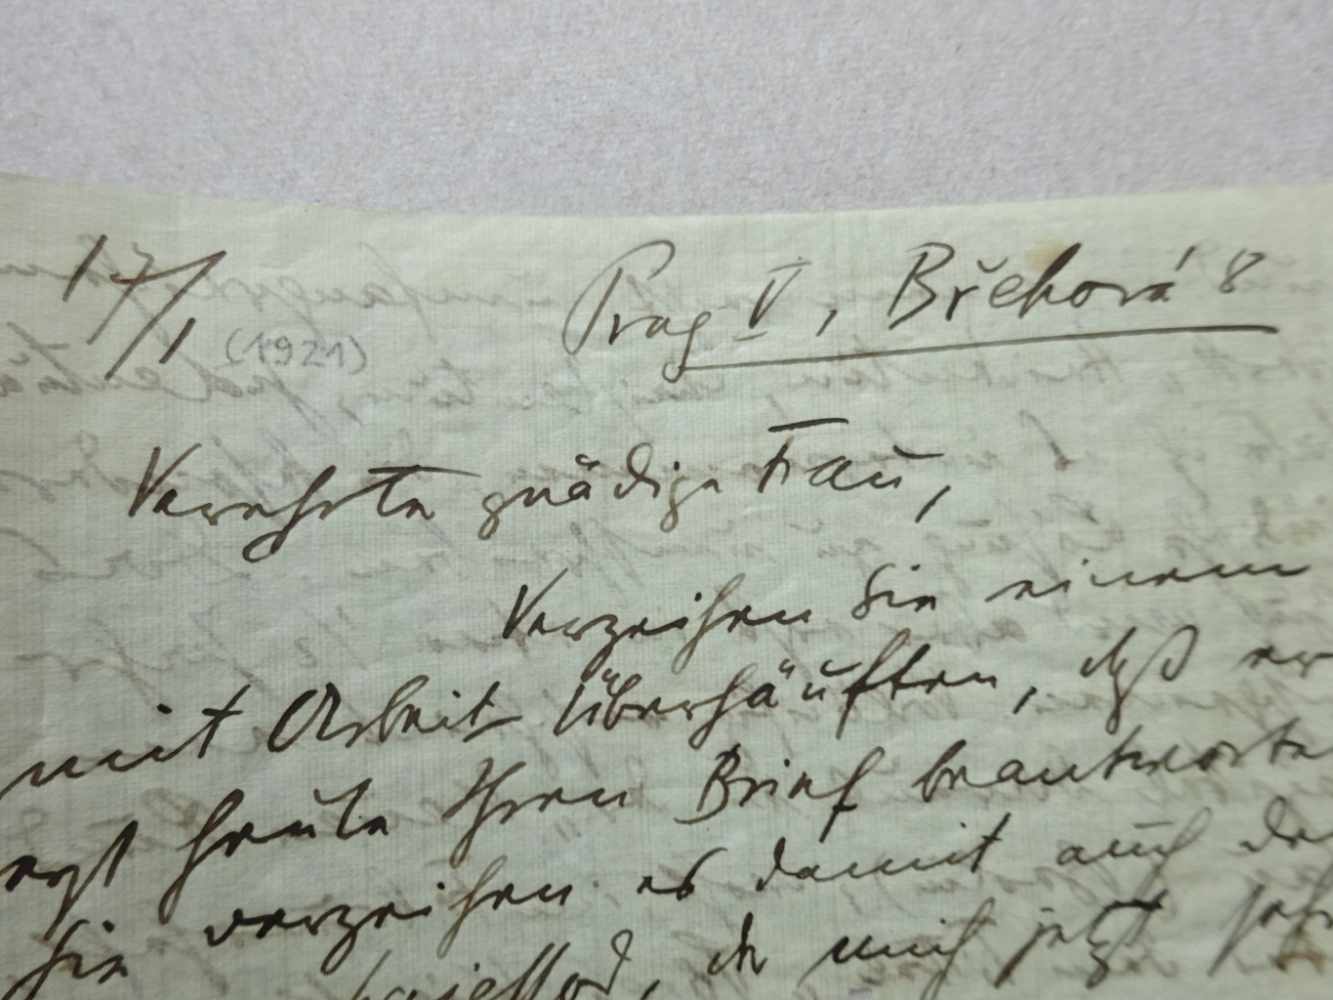 17/1 (1921) Prag V, Břehová 8
Verehrte gnädige Frau,
Verzeihen Sie einem
mit Arbeit überhäuften, daß er
erst heute Ihren Brief beantworte
Sie verzeihen es damit auch de
der mich jetzt sehr